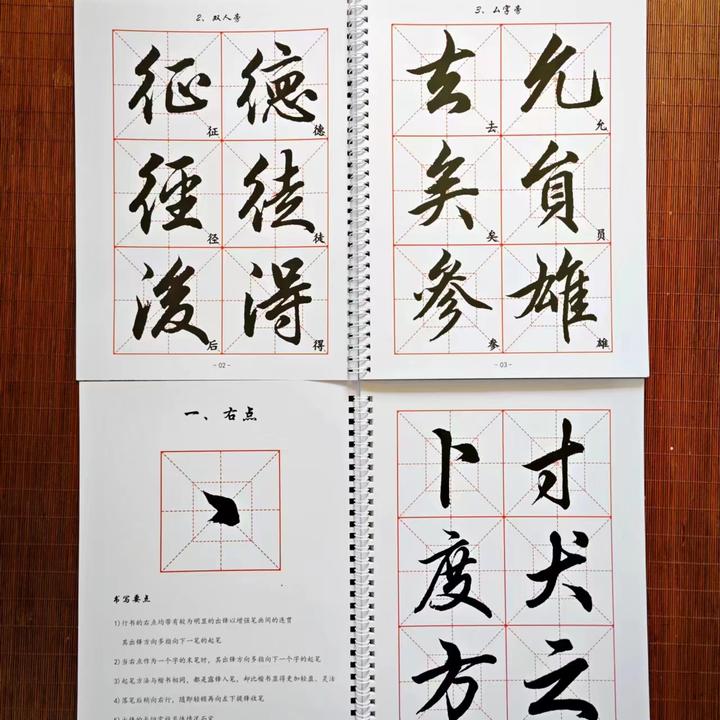 2、双人旁
征 德
征 德
徑 徒
径 徒
後 得
后 得
- 02 -
3、厶字旁
去 允
去 允
矣 負
矣 员
參 雄
参 雄
- 03 -
一、右点
书写要点
1)行书的右点均带有较为明显的出锋以增强笔画间的连贯
其出锋方向多指向下一笔的起笔
2)当右点作为一个字的末笔时,其出锋方向多指向下一个字的起笔
3)起笔方法与楷书相同,都是露锋入笔,却比楷书显得更加轻盈、灵活
4)落笔后稍向右行,随即轻顿再向左下提锋收笔
卜 寸
度 犬
方 云